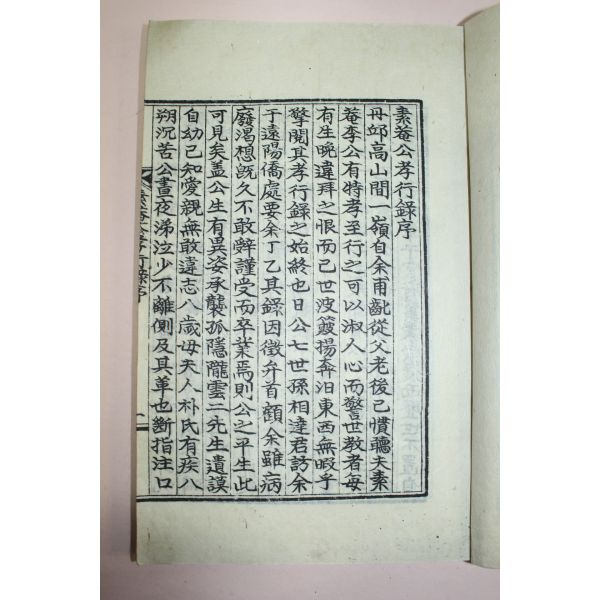 素菴公孝行錄序
丹邱高山間一嶺自余甫齔從父老後已慣聽夫素
菴李公有特孝至行之可以淑人心而警世敎者每
有生晚違拜之恨而已世波簸揚奔汨東西無暇乎
擎閱其孝行錄之始終也日公七世孫相達君訪余
于遠陽僑處要余丁乙其錄因徵弁首顧余雖病
廢渴想旣久不敢辤謹受而卒業焉則公之平生此
可見矣盖公生有異姿承襲孤隱隴雲二先生遺謨
自幼已知愛親無敢違志八歲母夫人朴氏有疾八
朔沉苦公晝夜涕泣少不離側及其革也斷指注口
素菴公孝行錄序
一